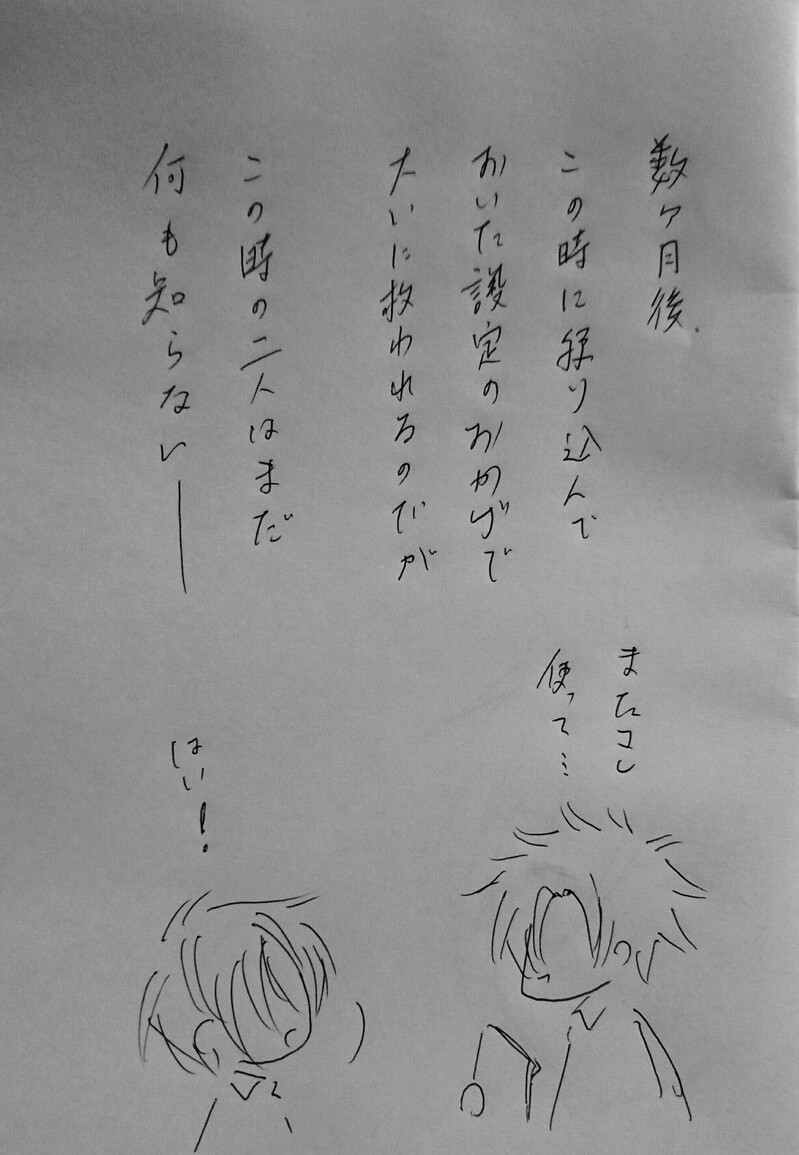 数ケ月後、
この時に練り込んで
おいた設定のおかげで
大いに救われるのだが
この時の二人はまだ
何も知らない――
またコレ
使って…
はい!